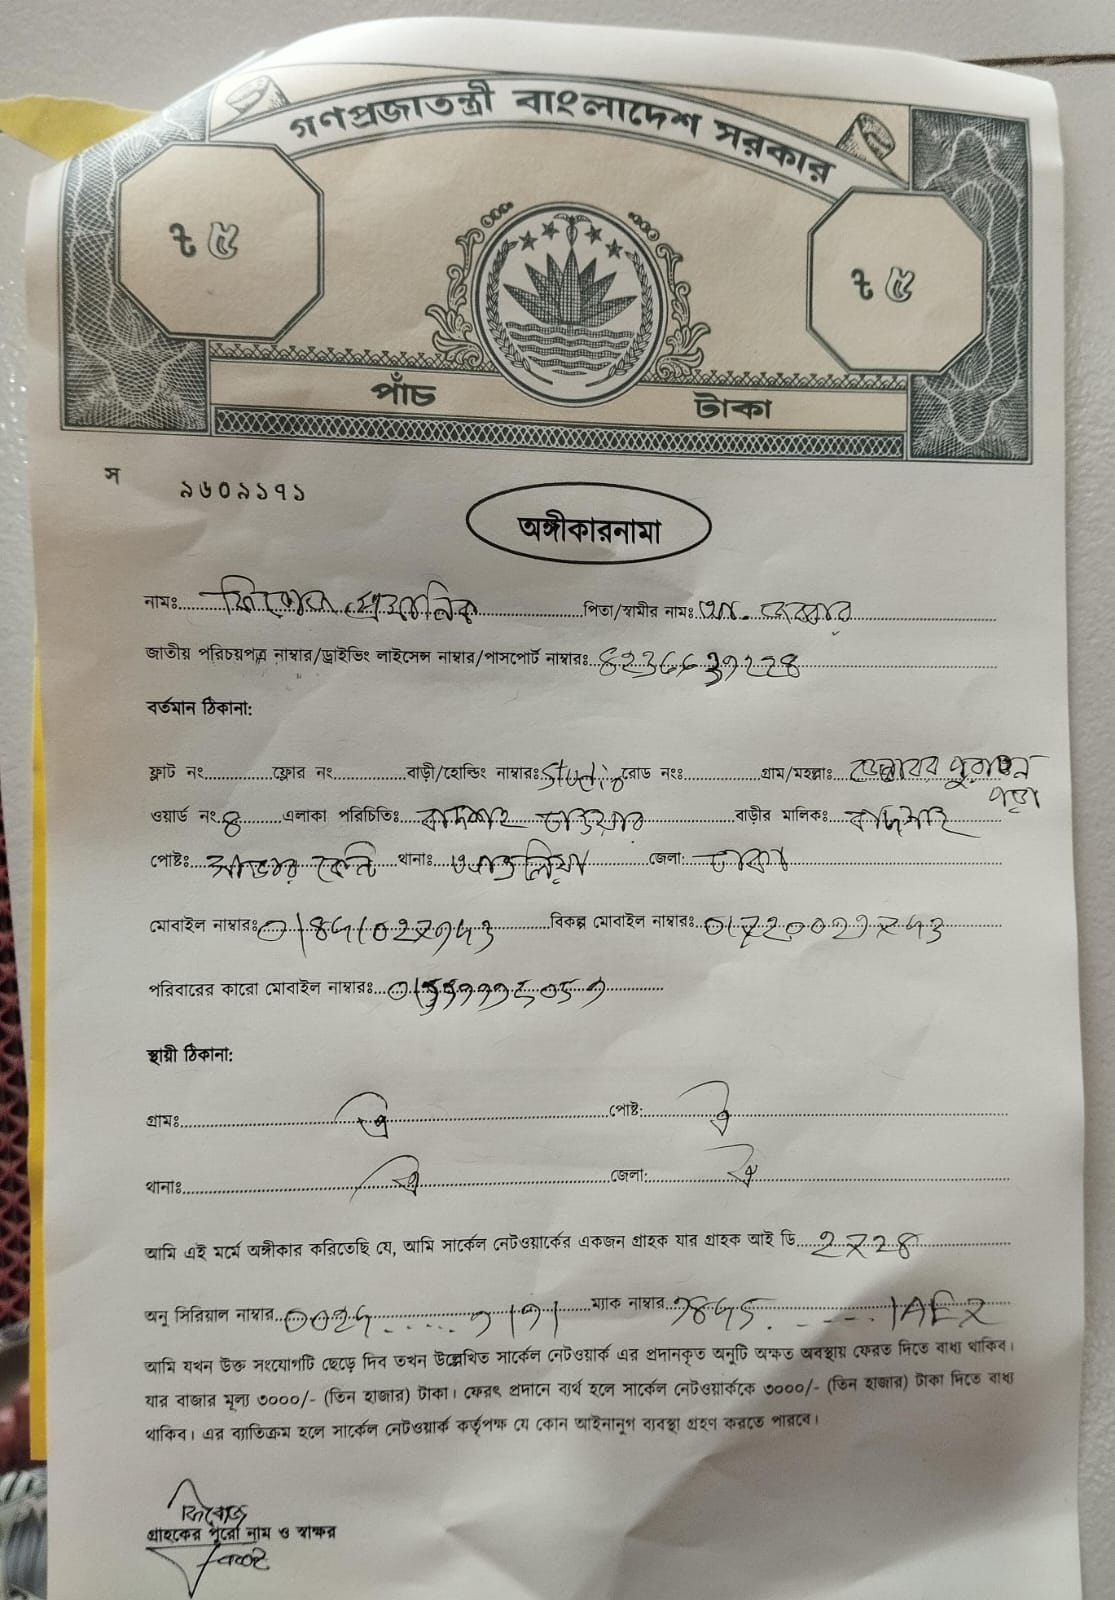 গণপ্রজাতন্ত্রী বাংলাদেশ সরকার
ট ৫
ট ৫
পাঁচ টাকা
স ৯৬০৯১৭১
অঙ্গীকারনামা
নামঃ ফিরোজ প্রামানিক পিতা/স্বামীর নামঃ আ. জব্বার
জাতীয় পরিচয়পত্র নাম্বার/ড্রাইভিং লাইসেন্স নাম্বার/পাসপোর্ট নাম্বারঃ
বর্তমান ঠিকানা:
ফ্লাট নং ফ্লোর নং বাড়ী/হোল্ডিং নাম্বারঃ রোড নংঃ গ্রাম/মহল্লাঃ পুরাতন
পাড়া
ওয়ার্ড নং ৪ এলাকা পরিচিতিঃ বাদশাহ টাওয়ার বাড়ীর মালিকঃ বাদশাহ
পোষ্টঃ সাভার কেন্ট থানাঃ আশুলিয়া জেলা: ঢাকা
মোবাইল নাম্বারঃ বিকল্প মোবাইল নাম্বারঃ
পরিবারের কারো মোবাইল নাম্বারঃ
স্থায়ী ঠিকানা:
গ্রামঃ ঐ পোষ্ট: ঐ
থানাঃ ঐ জেলা: ঐ
আমি এই মর্মে অঙ্গীকার করিতেছি যে, আমি সার্কেল নেটওয়ার্কের একজন গ্রাহক যার গ্রাহক আই ডি
অনু সিরিয়াল নাম্বার ম্যাক নাম্বার
আমি যখন উক্ত সংযোগটি ছেড়ে দিব তখন উল্লেখিত সার্কেল নেটওয়ার্ক এর প্রদানকৃত অনুটি অক্ষত অবস্থায় ফেরত দিতে বাধ্য থাকিব।
যার বাজার মূল্য ৩০০০/- (তিন হাজার) টাকা। ফেরৎ প্রদানে ব্যর্থ হলে সার্কেল নেটওয়ার্ককে ৩০০০/- (তিন হাজার) টাকা দিতে বাধ্য
থাকিব। এর ব্যতিক্রম হলে সার্কেল নেটওয়ার্ক কর্তৃপক্ষ যে কোন আইনানুগ ব্যবস্থা গ্রহণ করতে পারবে।
ফিরোজ
গ্রাহকের পুরো নাম ও স্বাক্ষর